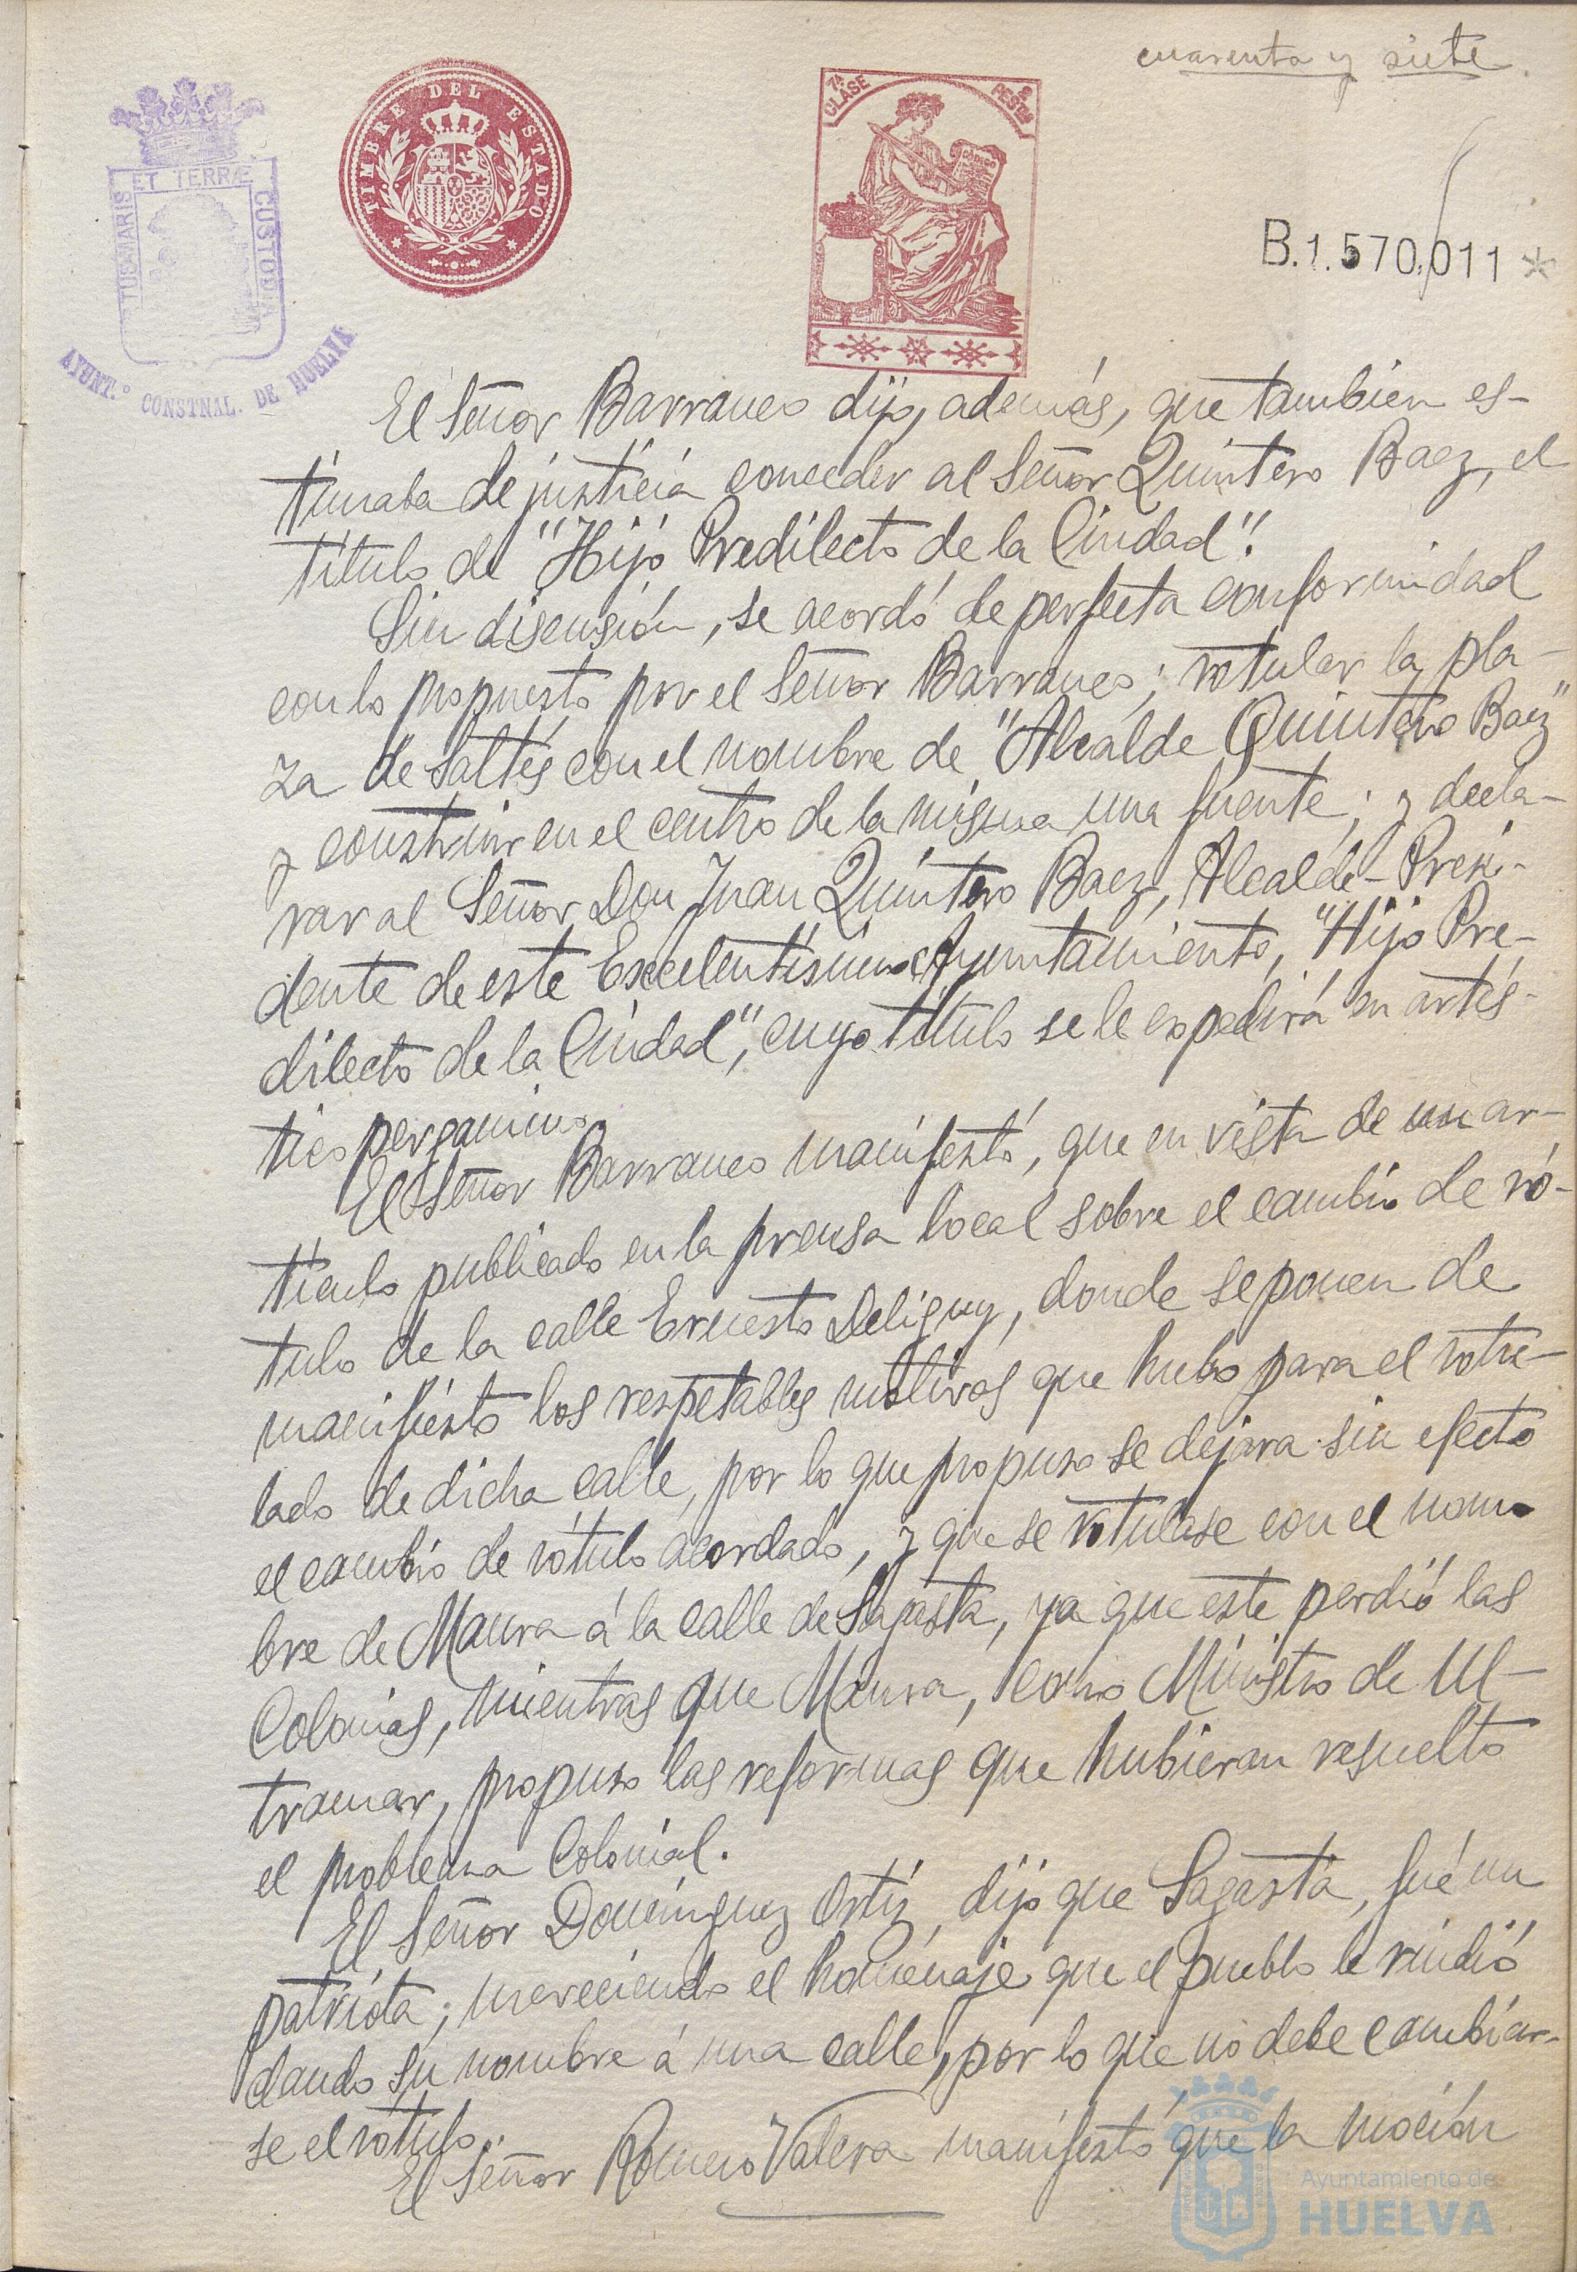 cuarenta y siete
TIMBRE DEL ESTADO
7ª CLASE
2 PESTAS
CODIGO
PORTUS MARIS ET TERRÆ CUSTODIA
AYUNT.º CONSTNAL. DE HUELVA
B.1.570,011 *
El Señor Barranco dijo, además, que tambien es-
timaba de justicia conceder al Señor Quintero Baez, el
título de "Hijo Predilecto de la Ciudad".
Sin discusión, se acordó de perfecta conformidad
con lo propuesto por el Señor Barranco; rotular la pla-
za de Saltés con el nombre de "Alcalde Quintero Baez"
y construir en el centro de la misma una fuente; y decla-
rar al Señor Don Juan Quintero Baez, Alcalde-Presi-
dente de este Excelentísimo Ayuntamiento, "Hijo Pre-
dilecto de la Ciudad", cuyo título se le expedirá en artís-
tico pergamino.
El Señor Barranco manifestó, que en vista de un ar-
tículo publicado en la prensa local sobre el cambio de ró-
tulo de la calle Ernesto Deligny, donde se ponen de
manifiesto los respetables motivos que hubo para el rotu-
lado de dicha calle, por lo que propuso se dejara sin efecto
el cambio de rótulo acordado, y que se rotulase con el nom-
bre de Maura á la calle de Sagasta, ya que este perdió las
Colonias, mientras que Maura, como Ministro de Ul-
tramar, propuso las reformas que hubieran resuelto
el problema Colonial.
El Señor Domínguez Ortiz, dijo que Sagasta, fué un
patriota; mereciendo el homenaje que el pueblo le rindió
dando su nombre á una calle, por lo que no debe cambiar-
se el rótulo.
El Señor Romero Valera manifestó que la moción
Ayuntamiento de
HUELVA